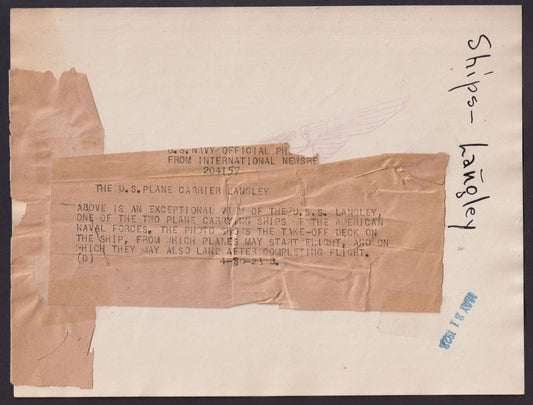 U.S. NAVY OFFICIAL
FROM INTERNATIONAL
204157
THE U.S. PLANE CARRIER LANGLEY
ABOVE IS AN EXCEPTIONAL VIEW OF THE U.S.S. LANGLEY,
ONE OF THE TWO PLANE CARRYING SHIPS OF THE AMERICAN
NAVAL FORCES. THE PHOTO SHOWS THE TAKE-OFF DECK ON
THE SHIP, FROM WHICH PLANES MAY START FLIGHT, AND ON
WHICH THEY MAY ALSO LAND AFTER COMPLETING FLIGHT.
(D)
Ships - Langley
MAY 21 1928